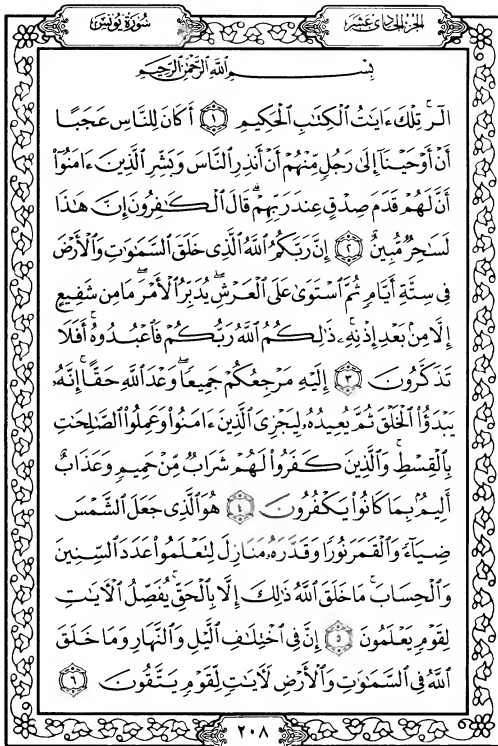 سُورَةُ يُونُسَ
الجُزْءُ الحَادِي عَشَرَ
بِسْمِ ٱللَّهِ ٱلرَّحْمَٰنِ ٱلرَّحِيمِ
الٓرۚ تِلْكَ ءَايَٰتُ ٱلْكِتَٰبِ ٱلْحَكِيمِ ١ أَكَانَ لِلنَّاسِ عَجَبًا
أَنْ أَوْحَيْنَآ إِلَىٰ رَجُلٍ مِّنْهُمْ أَنْ أَنذِرِ ٱلنَّاسَ وَبَشِّرِ ٱلَّذِينَ ءَامَنُوٓا۟
أَنَّ لَهُمْ قَدَمَ صِدْقٍ عِندَ رَبِّهِمْۗ قَالَ ٱلْكَٰفِرُونَ إِنَّ هَٰذَا
لَسَٰحِرٌ مُّبِينٌ ٢ إِنَّ رَبَّكُمُ ٱللَّهُ ٱلَّذِى خَلَقَ ٱلسَّمَٰوَٰتِ وَٱلْأَرْضَ
فِى سِتَّةِ أَيَّامٍ ثُمَّ ٱسْتَوَىٰ عَلَى ٱلْعَرْشِۖ يُدَبِّرُ ٱلْأَمْرَۖ مَا مِن شَفِيعٍ
إِلَّا مِنۢ بَعْدِ إِذْنِهِۦۚ ذَٰلِكُمُ ٱللَّهُ رَبُّكُمْ فَٱعْبُدُوهُۚ أَفَلَا
تَذَكَّرُونَ ٣ إِلَيْهِ مَرْجِعُكُمْ جَمِيعًاۖ وَعْدَ ٱللَّهِ حَقًّاۚ إِنَّهُۥ
يَبْدَؤُا۟ ٱلْخَلْقَ ثُمَّ يُعِيدُهُۥ لِيَجْزِىَ ٱلَّذِينَ ءَامَنُوا۟ وَعَمِلُوا۟ ٱلصَّٰلِحَٰتِ
بِٱلْقِسْطِۚ وَٱلَّذِينَ كَفَرُوا۟ لَهُمْ شَرَابٌ مِّنْ حَمِيمٍ وَعَذَابٌ
أَلِيمٌۢ بِمَا كَانُوا۟ يَكْفُرُونَ ٤ هُوَ ٱلَّذِى جَعَلَ ٱلشَّمْسَ
ضِيَآءً وَٱلْقَمَرَ نُورًا وَقَدَّرَهُۥ مَنَازِلَ لِتَعْلَمُوا۟ عَدَدَ ٱلسِّنِينَ
وَٱلْحِسَابَۚ مَا خَلَقَ ٱللَّهُ ذَٰلِكَ إِلَّا بِٱلْحَقِّۚ يُفَصِّلُ ٱلْءَايَٰتِ
لِقَوْمٍ يَعْلَمُونَ ٥ إِنَّ فِى ٱخْتِلَٰفِ ٱلَّيْلِ وَٱلنَّهَارِ وَمَا خَلَقَ
ٱللَّهُ فِى ٱلسَّمَٰوَٰتِ وَٱلْأَرْضِ لَءَايَٰتٍ لِّقَوْمٍ يَتَّقُونَ ٦
٢٠٨